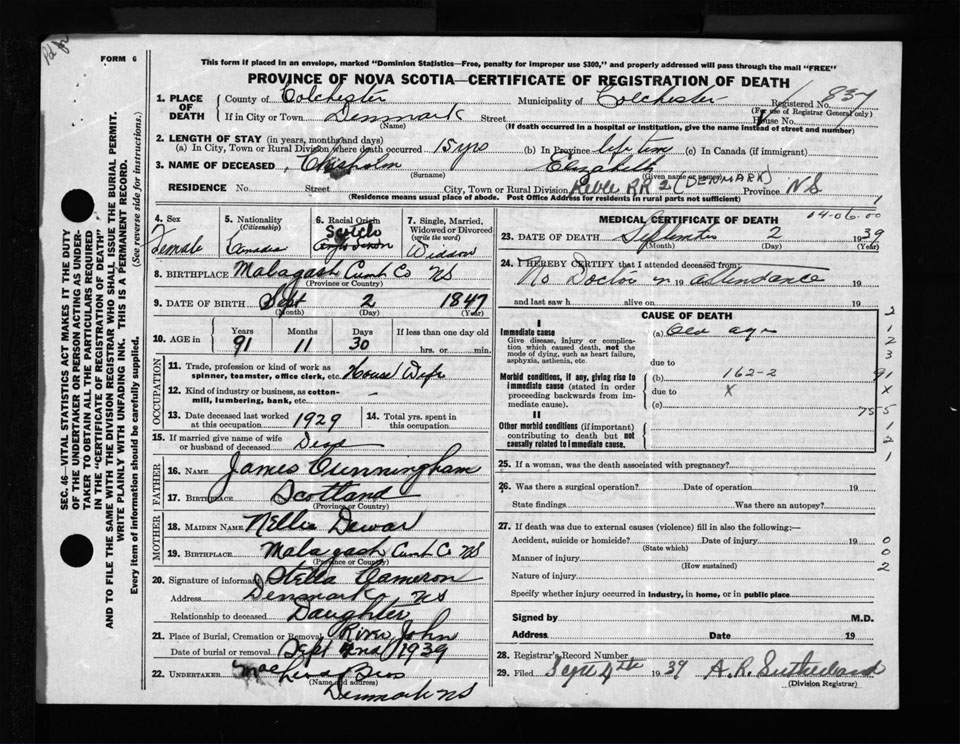 FORM 6
This form if placed in an envelope, marked "Dominion Statistics—Free, penalty for improper use $300," and properly addressed will pass through the mail "FREE"
PROVINCE OF NOVA SCOTIA—CERTIFICATE OF REGISTRATION OF DEATH
1. PLACE OF DEATH
County of Colchester Municipality of Colchester Registered No. 837
(For use of Registrar General only)
If in City or Town Denmark Street House No.
(Name) (If death occurred in a hospital or institution, give the name instead of street and number)
2. LENGTH OF STAY (in years, months and days)
(a) In City, Town or Rural Division where death occurred 15 yrs (b) In Province life time (c) In Canada (if immigrant)
3. NAME OF DECEASED Chisholm Elizabeth
(Surname) (Given name or names)
RESIDENCE No. Street City, Town or Rural Division RR 2 (DENMARK) Province N.S.
(Residence means usual place of abode. Post Office Address for residents in rural parts not sufficient)
4. Sex
Female
5. Nationality
(Citizenship)
Canada
6. Racial Origin
Scotch
Anglo Saxon
7. Single, Married, Widowed or Divorced
(write the word)
Widow
8. BIRTHPLACE Malagash Cumb Co NS
(Province or Country)
9. DATE OF BIRTH Sept 2 1847
(Month) (Day) (Year)
10. AGE in
Years Months Days If less than one day old
91 11 30 hrs. or min.
OCCUPATION
11. Trade, profession or kind of work as spinner, teamster, office clerk, etc. House Wife
12. Kind of industry or business, as cotton-mill, lumbering, bank, etc.
13. Date deceased last worked at this occupation 1929
14. Total yrs. spent in this occupation
15. If married give name of wife or husband of deceased Dead
FATHER
16. NAME James Cunningham
17. BIRTHPLACE Scotland
(Province or Country)
MOTHER
18. MAIDEN NAME Nellie Dewar
19. BIRTHPLACE Malagash Cumb Co NS
(Province or Country)
20. Signature of informant Stella Cameron
Address Denmark NS
Relationship to deceased Daughter
21. Place of Burial, Cremation or Removal River John
Date of burial or removal Sept 1939
22. UNDERTAKER Bros
(Name and address)
Denmark NS
MEDICAL CERTIFICATE OF DEATH
14-06-00
23. DATE OF DEATH September 2 1939
(Month) (Day) (Year)
24. I HEREBY CERTIFY that I attended deceased from:
No Doctor in 19 attendance 19
and last saw h alive on 19
CAUSE OF DEATH
I
Immediate cause (a) Old age
Give disease, injury or complication which caused death, not the mode of dying, such as heart failure, asphyxia, asthenia, etc.
due to
Morbid conditions, if any, giving rise to immediate cause (stated in order proceeding backwards from immediate cause).
(b) 162-2
due to X
(c)
II
Other morbid conditions (if important) contributing to death but not causally related to immediate cause.
2
1
2
3
91
X
755
1
2
1
25. If a woman, was the death associated with pregnancy?
26. Was there a surgical operation? Date of operation 19
State findings Was there an autopsy?
27. If death was due to external causes (violence) fill in also the following:—
Accident, suicide or homicide? Date of injury 19
(State which)
Manner of injury
(How sustained)
Nature of injury
Specify whether injury occurred in industry, in home, or in public place
0
0
2
Signed by M.D.
Address Date 19
28. Registrar's Record Number
29. Filed Sept 4th 1939 A. R. Sutherland
(Division Registrar)
SEC. 46—VITAL STATISTICS ACT MAKES IT THE DUTY
OF THE UNDERTAKER OR PERSON ACTING AS UNDER-
TAKER TO OBTAIN ALL THE PARTICULARS REQUIRED
IN THE "CERTIFICATE OF REGISTRATION OF DEATH"
AND TO FILE THE SAME WITH THE DIVISION REGISTRAR WHO SHALL ISSUE THE BURIAL PERMIT.
WRITE PLAINLY WITH UNFADING INK. THIS IS A PERMANENT RECORD.
Every item of information should be carefully supplied. (See reverse side for instructions.)